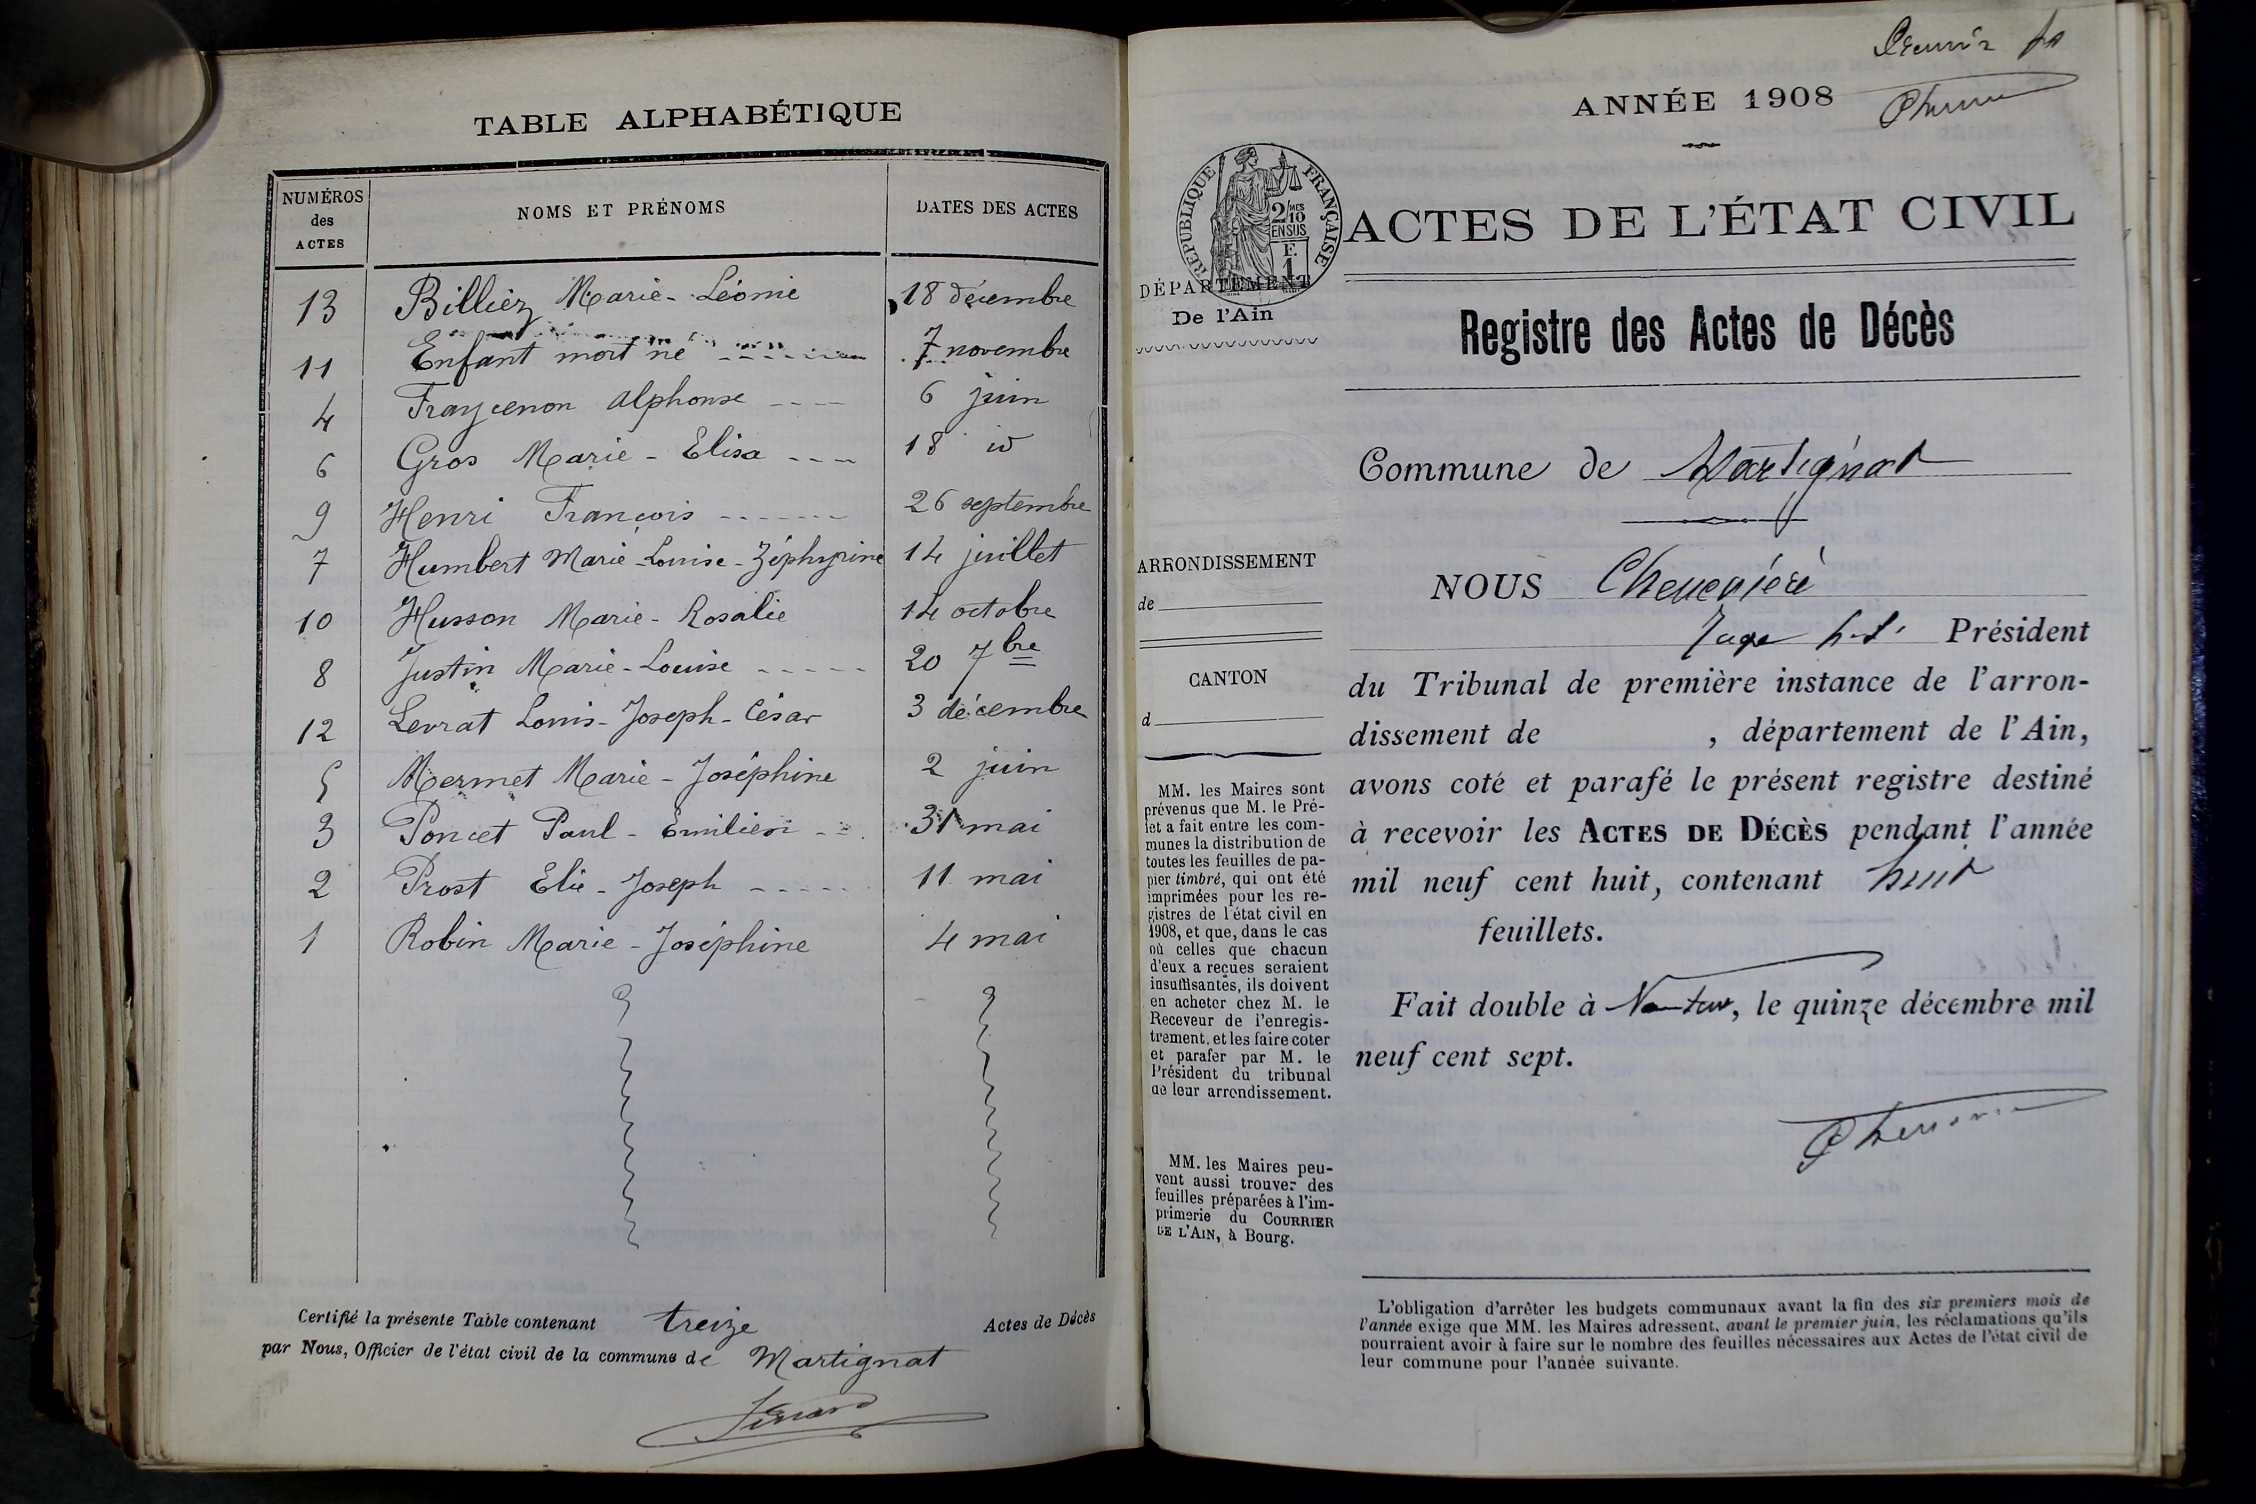 TABLE ALPHABÉTIQUE
NUMÉROS
des
ACTES
NOMS ET PRÉNOMS
DATES DES ACTES
13 Billiez Marie-Léonie 18 décembre
11 Enfant mort né 7 novembre
4 Fraycenon Alphonse 6 juin
6 Gros Marie-Elisa 18 id
9 Henri François 26 septembre
7 Humbert Marie-Louise-Zéphyrine 14 juillet
10 Husson Marie-Rosalie 14 octobre
8 Justin Marie-Louise 20 7bre
12 Levrat Louis-Joseph-César 3 décembre
5 Mermet Marie-Joséphine 2 juin
3 Poncet Paul-Emilien 31 mai
2 Prost Elie-Joseph 11 mai
1 Robin Marie-Joséphine 4 mai
Certifié la présente Table contenant treize Actes de Décès
par Nous, Officier de l'état civil de la commune de Martignat
ANNÉE 1908
RÉPUBLIQUE FRANÇAISE
2/MES
10
EN SUS
F.
1
ACTES DE L'ÉTAT CIVIL
DÉPARTEMENT
De l'Ain
Registre des Actes de Décès
Commune de Martignat
ARRONDISSEMENT
de
CANTON
d
NOUS Chenevière
Juge Président
du Tribunal de première instance de l'arron-
dissement de , département de l'Ain,
avons coté et parafé le présent registre destiné
à recevoir les ACTES DE DÉCÈS pendant l'année
mil neuf cent huit, contenant huit
feuillets.
Fait double à Nantua, le quinze décembre mil
neuf cent sept.
MM. les Maires sont
prévenus que M. le Pré-
fet a fait entre les com-
munes la distribution de
toutes les feuilles de pa-
pier timbré, qui ont été
imprimées pour les re-
gistres de l'état civil en
1908, et que, dans le cas
où celles que chacun
d'eux a reçues seraient
insuffisantes, ils doivent
en acheter chez M. le
Receveur de l'enregis-
trement, et les faire coter
et parafer par M. le
Président du tribunal
de leur arrondissement.
MM. les Maires peu-
vent aussi trouver des
feuilles préparées à l'im-
primerie du COURRIER
DE L'AIN, à Bourg.
L'obligation d'arrêter les budgets communaux avant la fin des six premiers mois de
l'année exige que MM. les Maires adressent, avant le premier juin, les réclamations qu'ils
pourraient avoir à faire sur le nombre des feuilles nécessaires aux Actes de l'état civil de
leur commune pour l'année suivante.